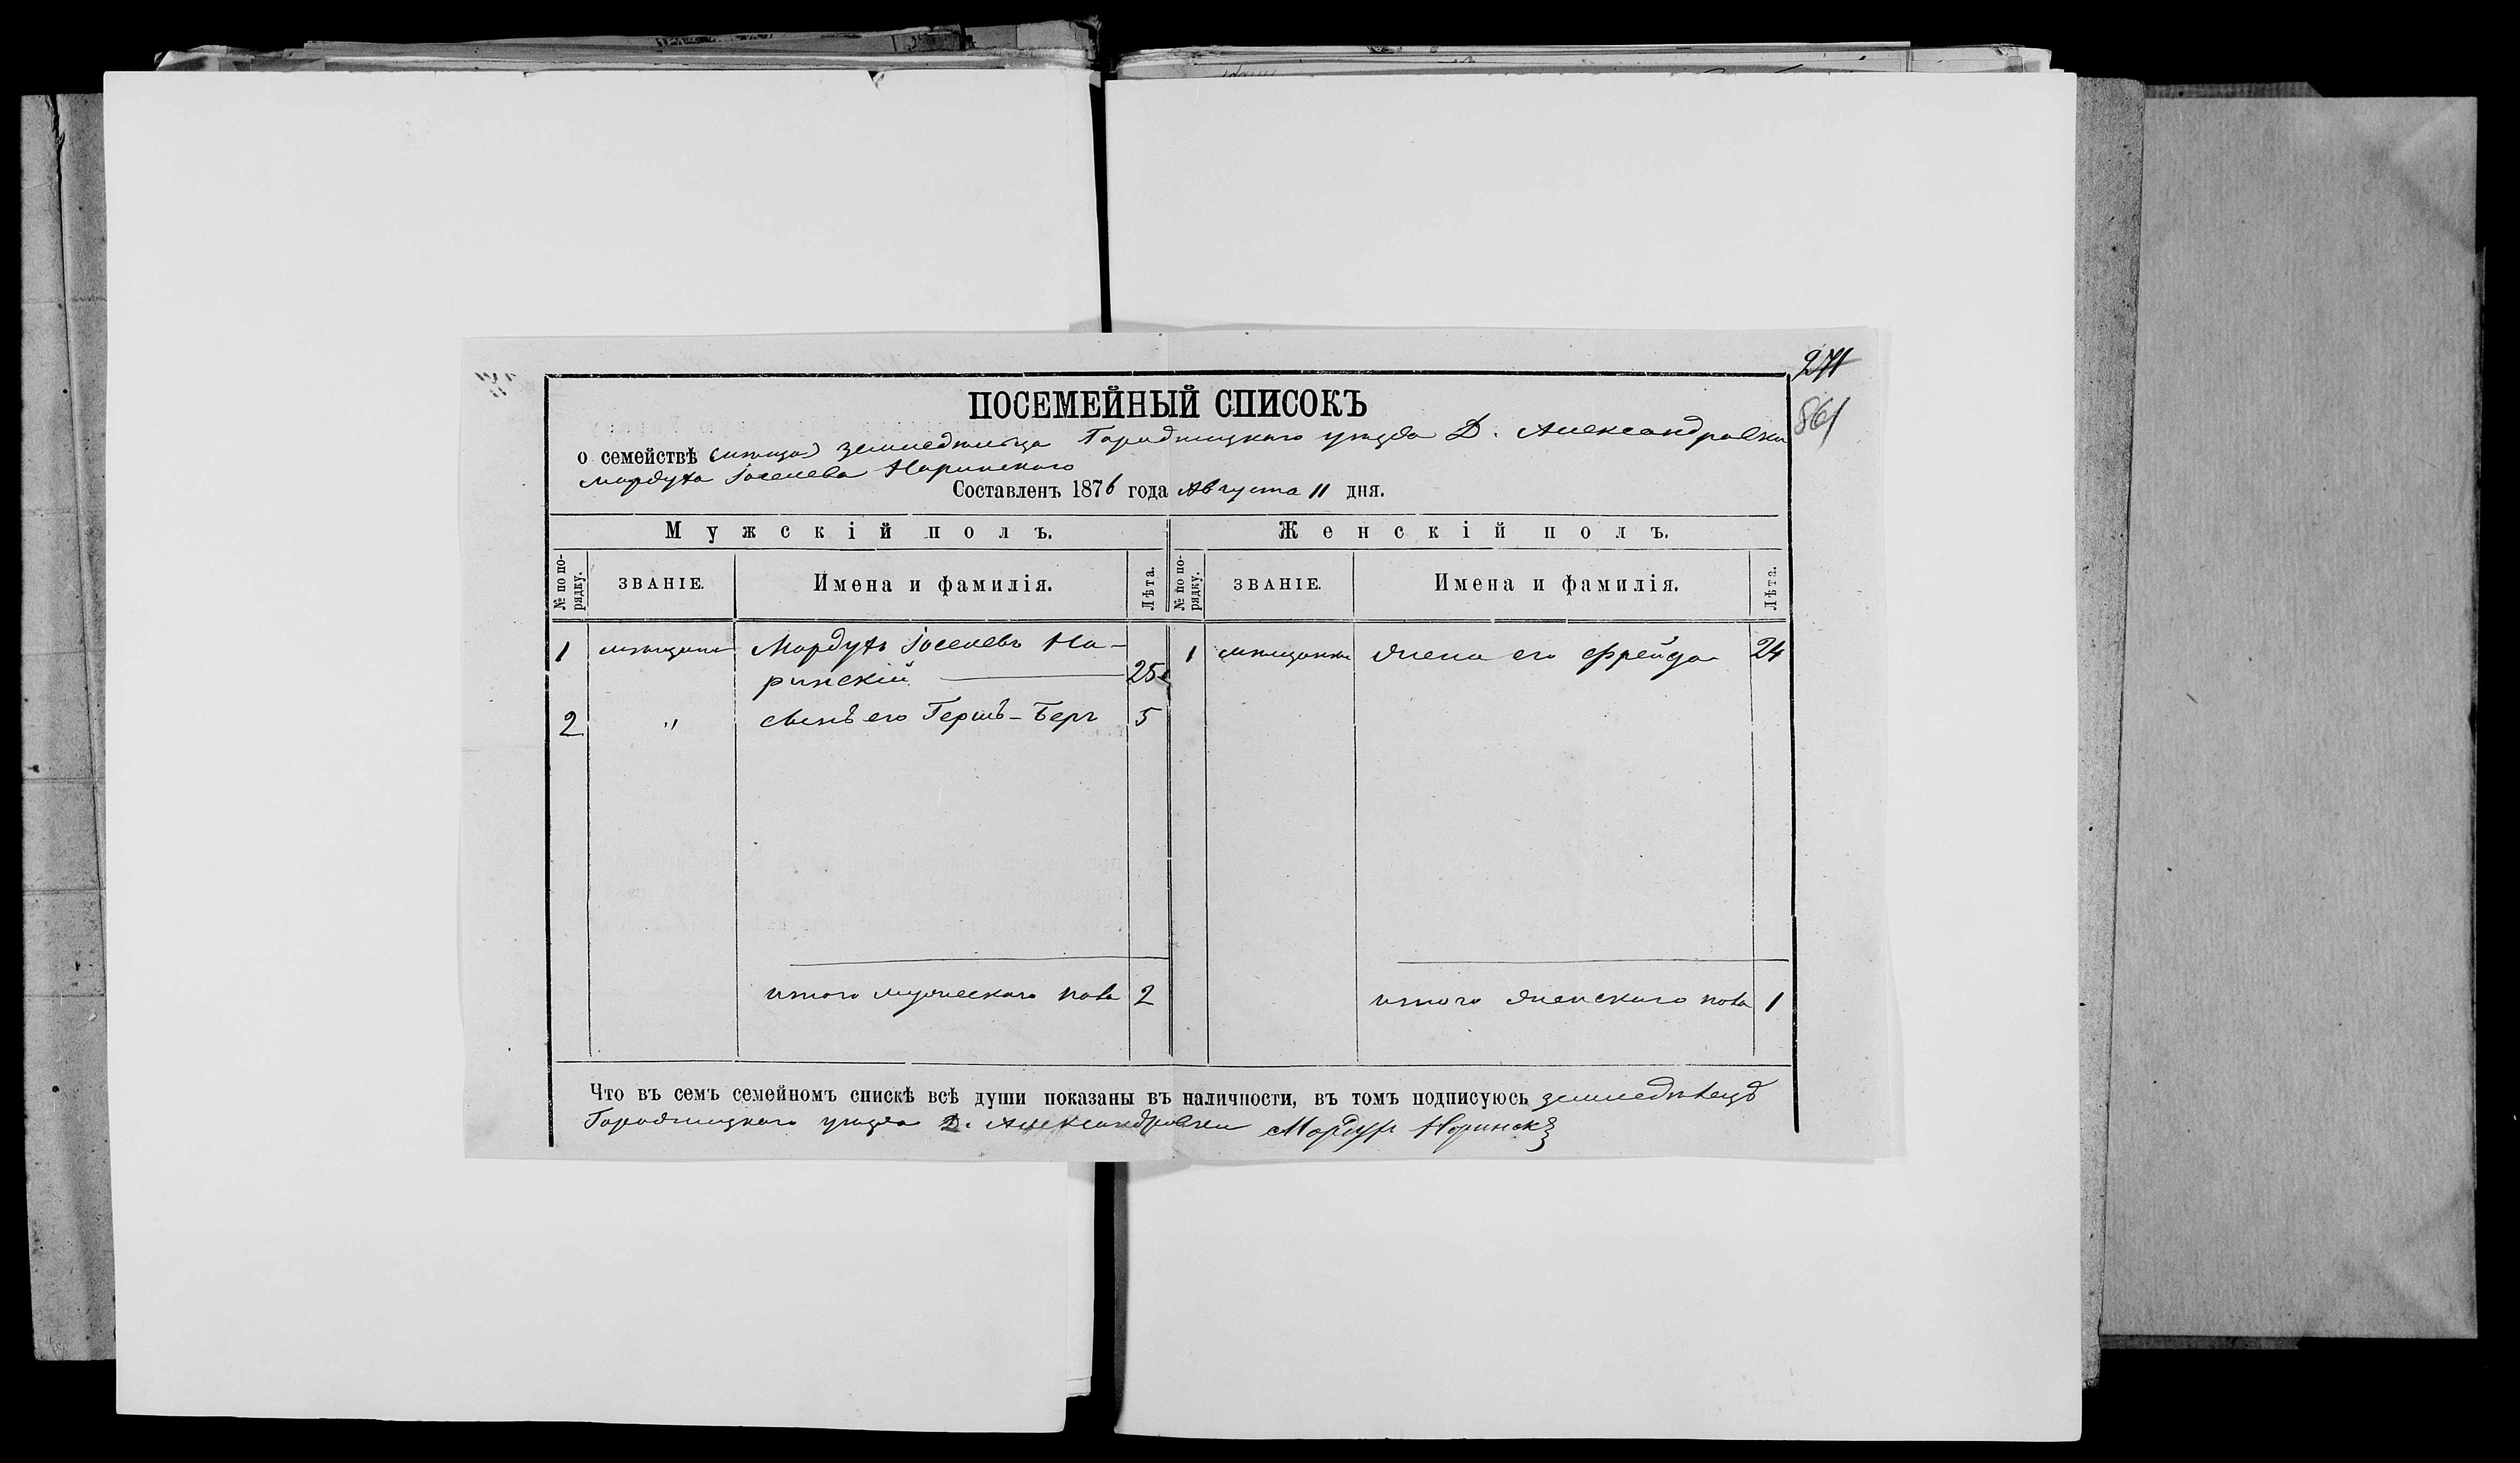 271
861
ПОСЕМЕЙНЫЙ СПИСОКЪ
о семействѣ земледѣльца Городницкаго уѣзда Д. Александровки
Мордуха Іоселева Наринскаго
Составленъ 1876 года Августа 11 дня.
Мужскій полъ. Женскій полъ.
№ по порядку. ЗВАНІЕ. Имена и фамилія. Лѣта. № по порядку. ЗВАНІЕ. Имена и фамилія. Лѣта.
1 мѣщанинъ Мордухъ Іоселевъ На- 1 мѣщанка жена его Фрейда 24
ринскій 25
2 " сынъ его Гершъ-Беръ 5
итого мужескаго пола 2 итого женскаго пола 1
Что въ семъ семейномъ спискѣ всѣ души показаны въ наличности, въ томъ подписуюсь земледѣлецъ
Городницкаго уѣзда Д. Александровки Мордухъ Норинскій